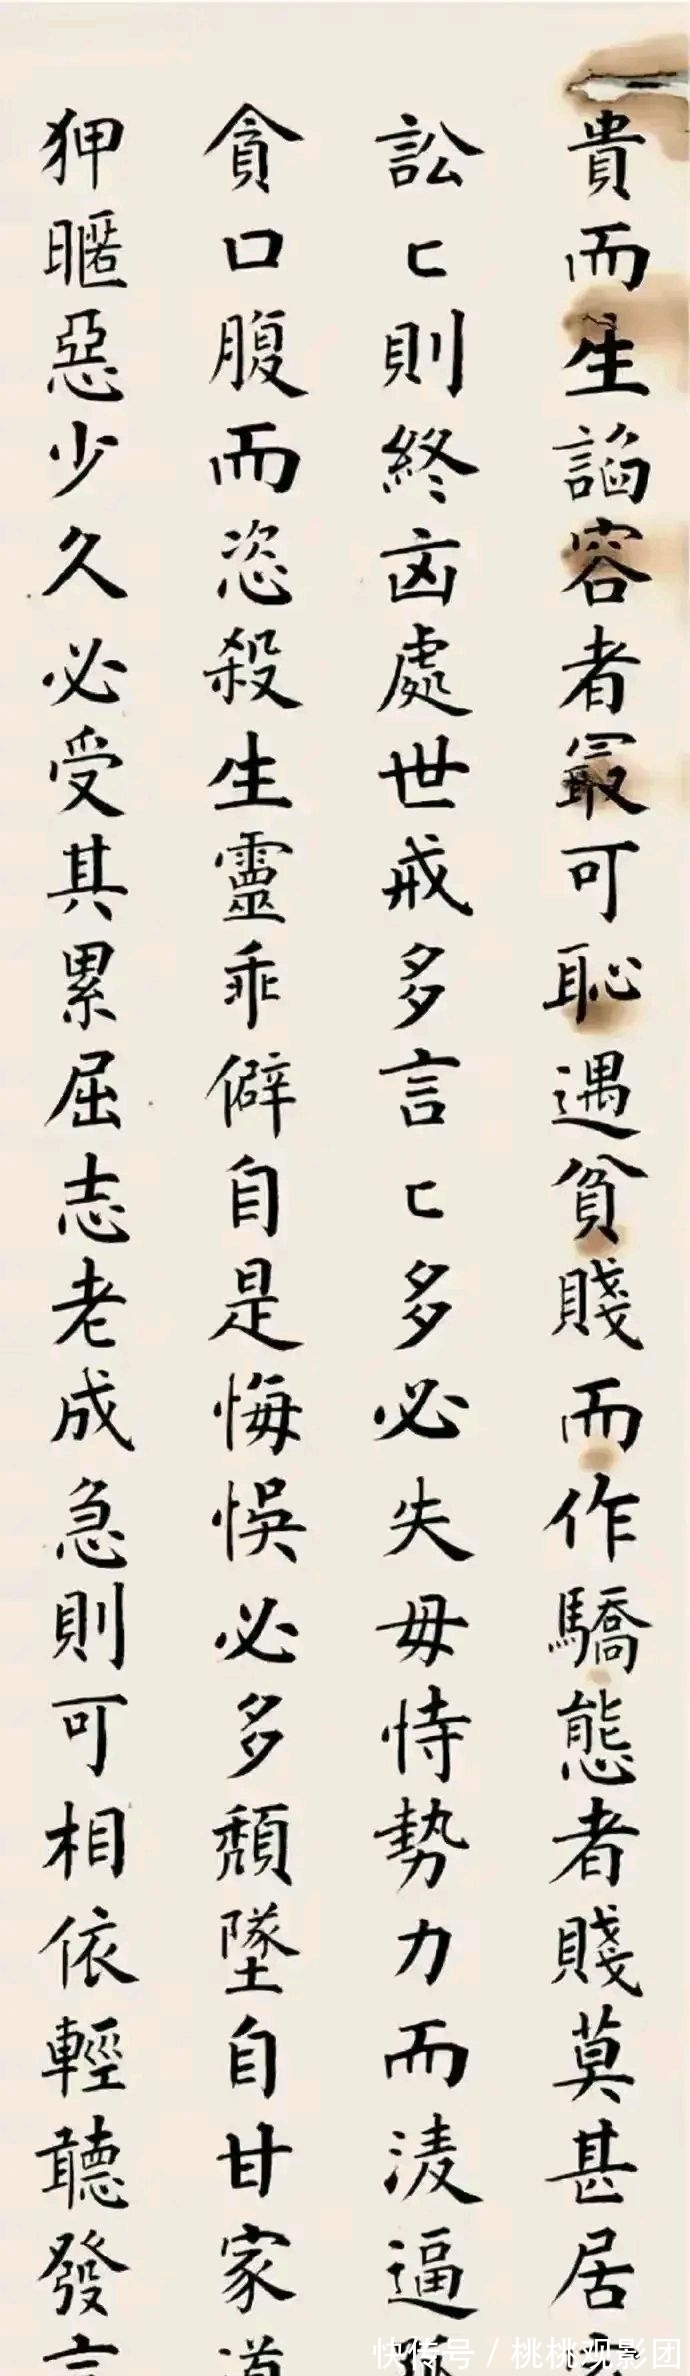 貴而生諂容者最可恥遇貧賤而作驕態者賤莫甚居
訟〻則終凶處世戒多言〻多必失毋恃勢力而淩逼
貪口腹而恣殺生靈乖僻自是悔悞必多頹墜自甘家道
狎暱惡少久必受其累屈志老成急則可相依輕聽發言
快传号 / 桃桃观影团